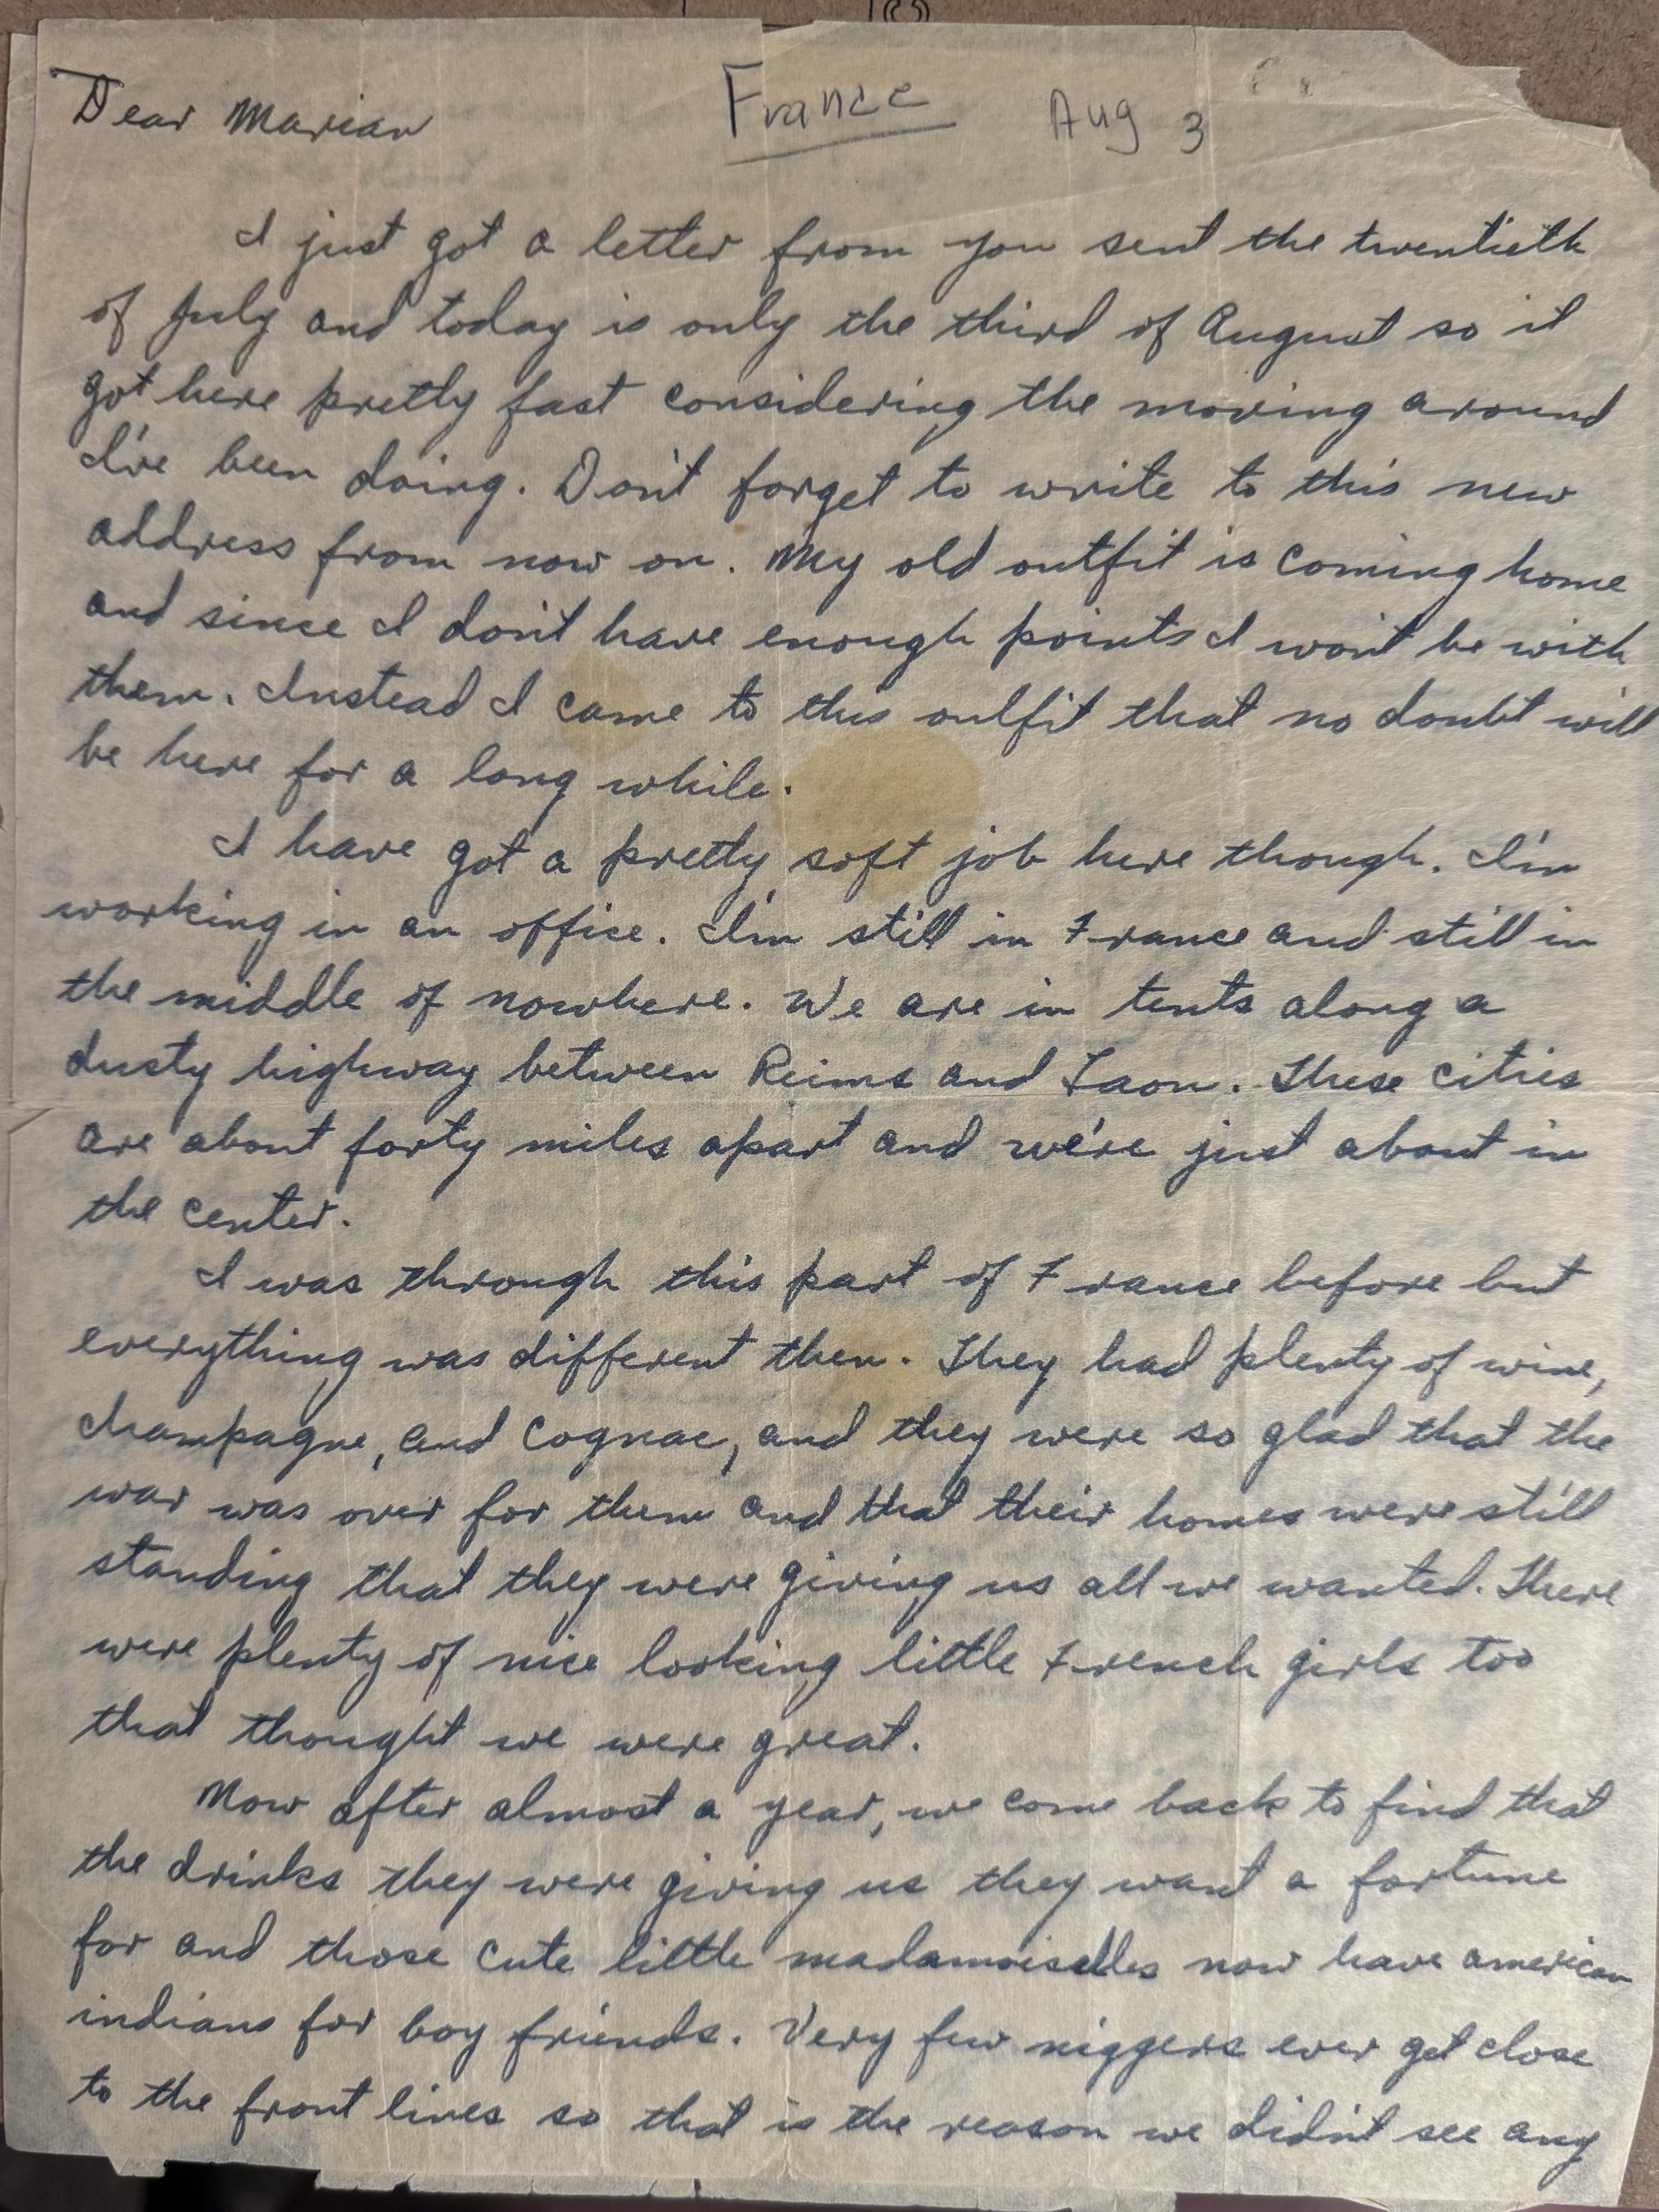 Dear Marian France Aug 3
I just got a letter from you sent the twentieth
of July and today is only the third of August so it
got here pretty fast considering the moving around
I've been doing. Don't forget to write to this new
address from now on. My old outfit is coming home
and since I don't have enough points I won't be with
them. Instead I came to this outfit that no doubt will
be here for a long while.
I have got a pretty soft job here though. I'm
working in an office. I'm still in France and still in
the middle of nowhere. We are in tents along a
dusty highway between Reims and Laon. These cities
are about forty miles apart and we're just about in
the center.
I was through this part of France before but
everything was different then. They had plenty of wine,
champagne, and Cognac, and they were so glad that the
war was over for them and that their homes were still
standing that they were giving us all we wanted. There
were plenty of nice looking little French girls too
that thought we were great.
Now after almost a year, we come back to find that
the drinks they were giving us they want a fortune
for and those cute little madamoiselles now have american
indians for boy friends. Very few niggers ever get close
to the front lines so that is the reason we didn't see any